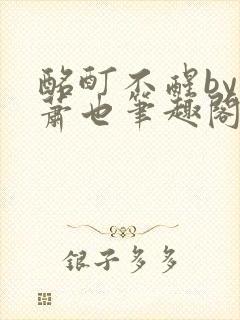 酩酊不醒by
萧也笔趣阁
银子多多